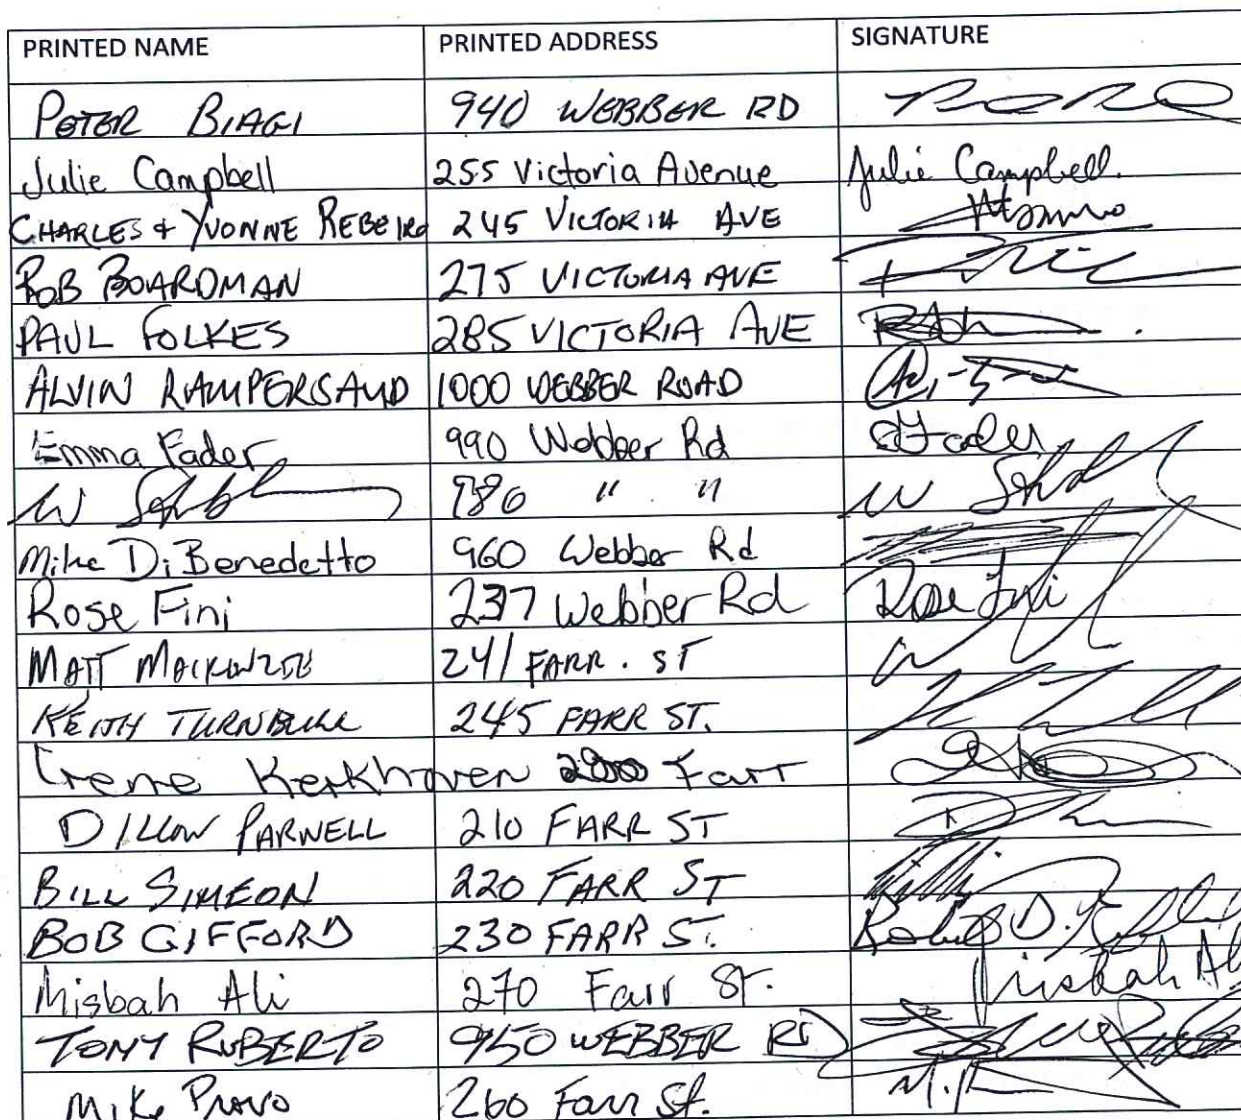 PRINTED NAME PRINTED ADDRESS SIGNATURE
PETER BIAGI 940 WEBBER RD
Julie Campbell 255 Victoria Avenue Julie Campbell.
CHARLES & YVONNE REBEIRO 245 VICTORIA AVE
BOB BOARDMAN 275 VICTORIA AVE
PAUL FOLKES 285 VICTORIA AVE
ALVIN RAMPERSAUD 1000 WEBBER ROAD
Emma Fader 990 Webber Rd EFader
W 980 " " W
Mike DiBenedetto 960 Webber Rd
Rose Fini 237 Webber Rd Rose Fini
MATT MACKENZIE 241 FARR. ST
KEITH TURNBULL 245 FARR ST.
Irene Kerkhoven Farr
DILLON PARNELL 210 FARR ST
BILL SIMEON 220 FARR ST
BOB GIFFORD 230 FARR ST. Robert D.
Misbah Ali 270 Farr St. Misbah Ali
TONY RUBERTO 950 WEBBER RD
Mike Provo 260 Farr St.